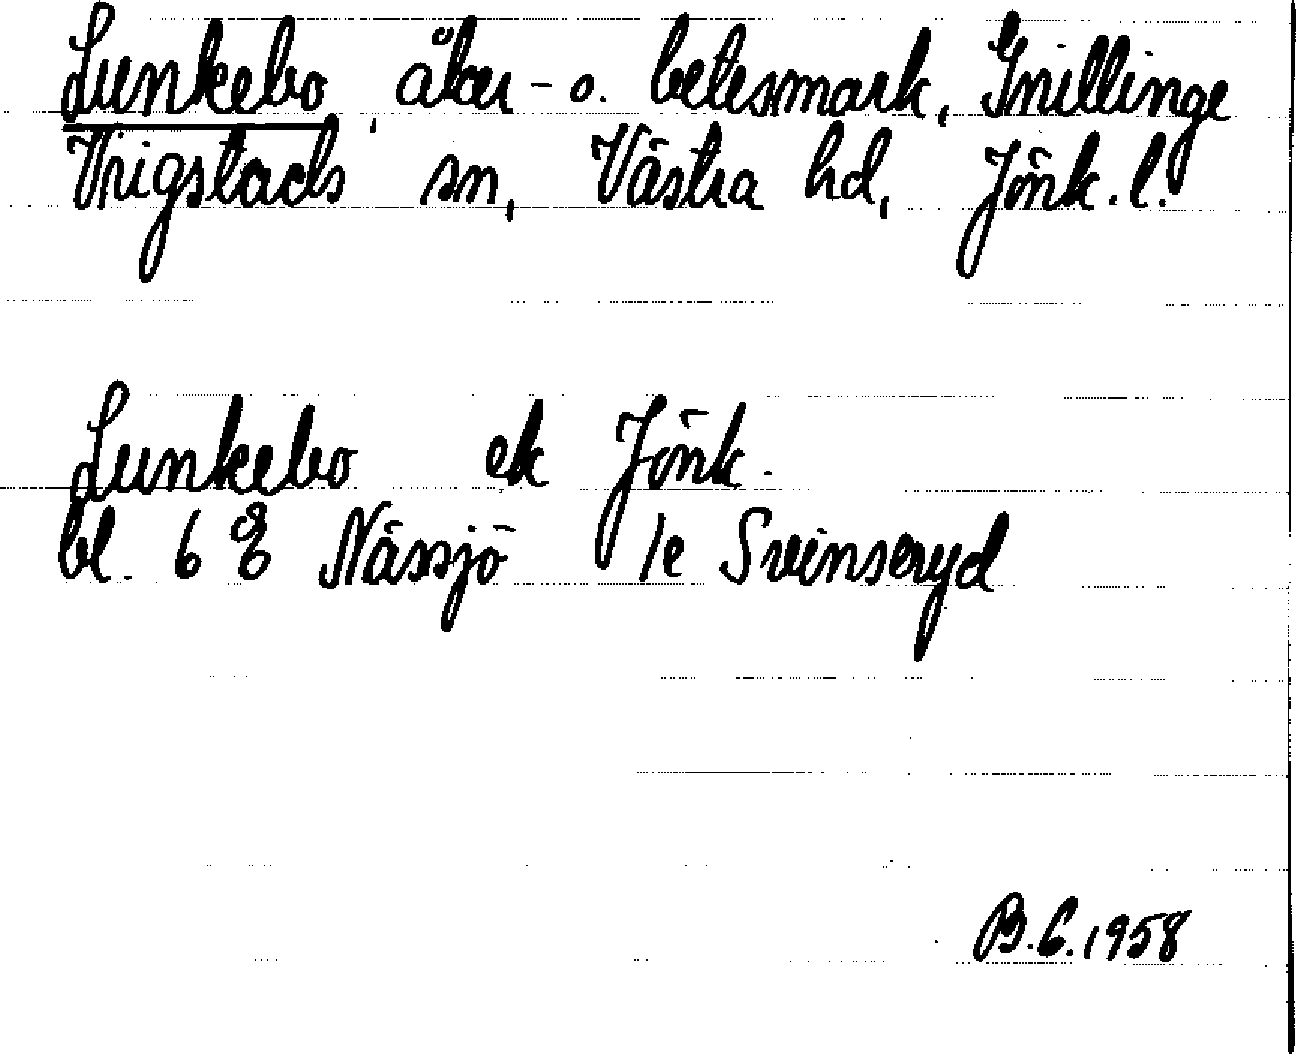 Lunkebo, åker- o. betesmark, Gnillinge
Vrigstads sn, Västra hd, Jönk. l.
Lunkebo ek Jönk.
bl. 6 g Nässjö /e Svenseryd
B.G. 1958